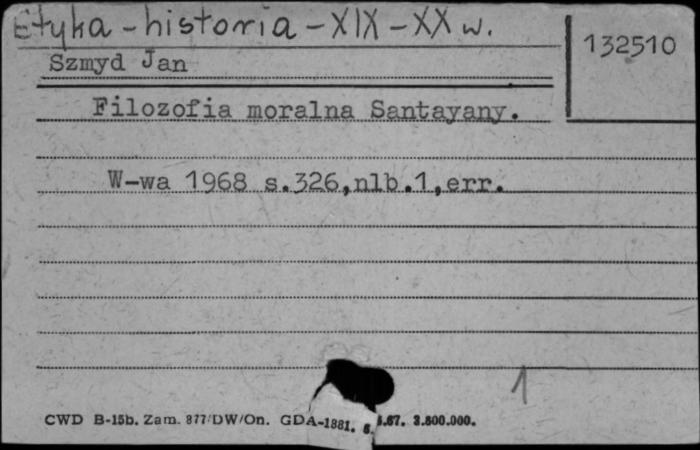 Etyka - historia - XIX - XX w.
132510
Szmyd Jan
Filozofia moralna Santayany.
W-wa 1968 s.326,nlb.1,err.
1
CWD B-15b. Zam. 877/DW/On. GDA-1881. 6. .67. 3.800.000.